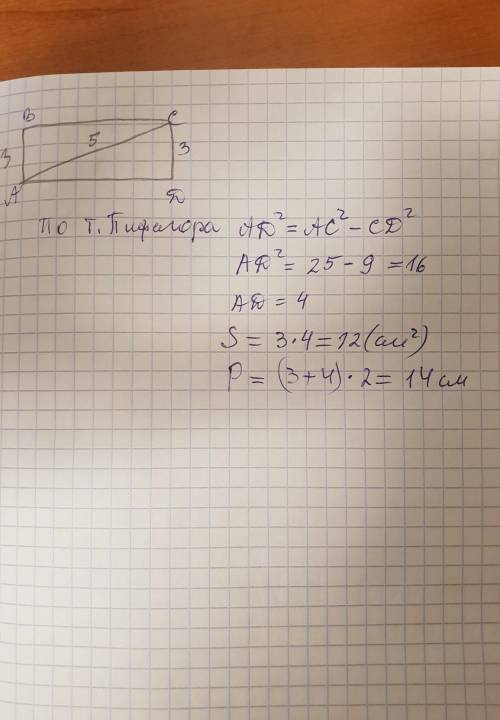 B C
5
3 3
A D
По т. Пифагора AD² = AC² − CD²
AD² = 25 − 9 = 16
AD = 4
S = 3 · 4 = 12 (см²)
P = (3+4) · 2 = 14 см